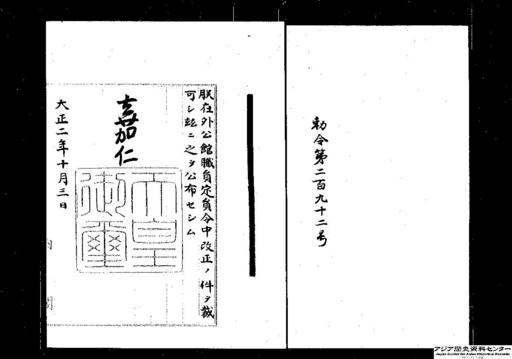 勅令第二百九十二号
朕在外公館職員定員令中改正ノ件ヲ裁
可シ茲ニ之ヲ公布セシム
嘉仁
天皇
御璽
大正二年十月三日
内
閣
アジア歴史資料センター
Japan Center for Asian Historical Records